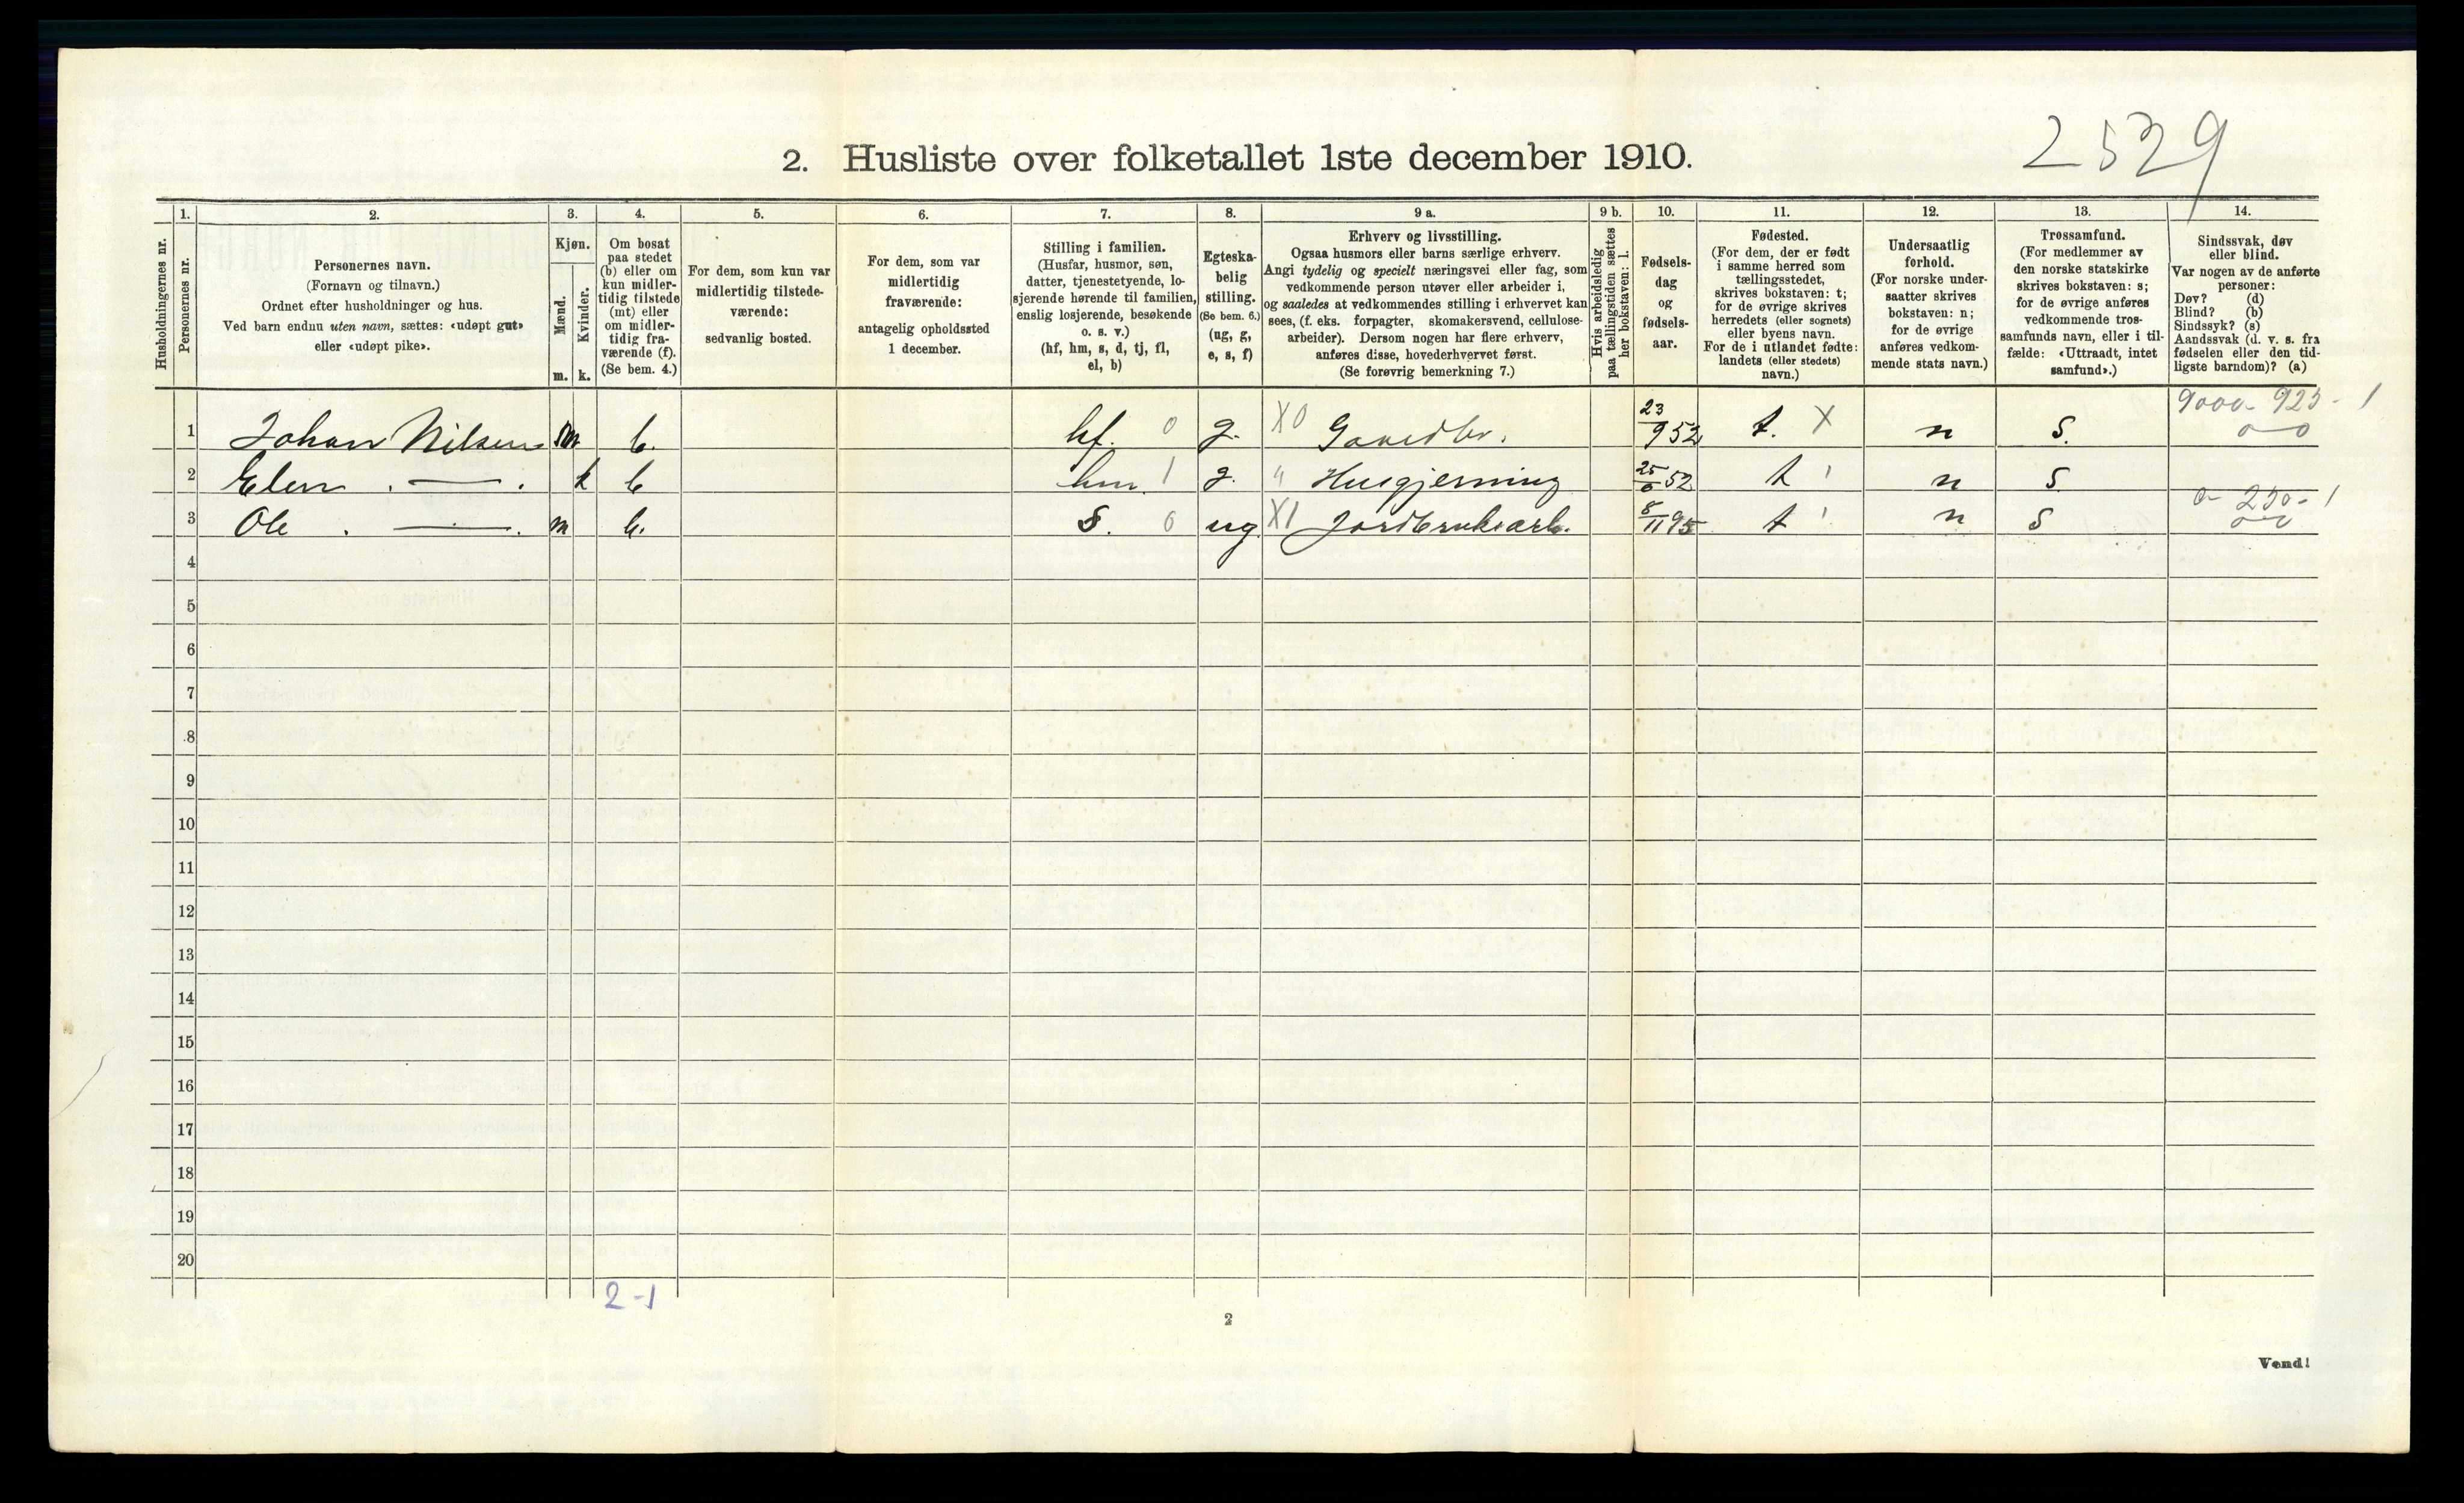 2529
2. Husliste over folketallet 1ste december 1910.
Husholdningernes nr.
1.
Personernes nr.
2.
Personernes navn.
(Fornavn og tilnavn.)
Ordnet efter husholdninger og hus.
Ved barn endnu uten navn, sættes: «udøpt gut»
eller «udøpt pike».
3.
Kjøn.
Mænd.
Kvinder.
m. k.
4.
Om bosat
paa stedet
(b) eller om
kun midler-
tidig tilstede
(mt) eller
om midler-
tidig fra-
værende (f).
(Se bem. 4.)
5.
For dem, som kun var
midlertidig tilstede-
værende:
sedvanlig bosted.
6.
For dem, som var
midlertidig
fraværende:
antagelig opholdssted
1 december.
7.
Stilling i familien.
(Husfar, husmor, søn,
datter, tjenestetyende, lo-
sjerende hørende til familien,
enslig losjerende, besøkende
o. s. v.)
(hf, hm, s, d, tj, fl,
el, b)
8.
Egteska-
belig
stilling.
(Se bem. 6.)
(ug, g,
e, s, f)
9 a.
Erhverv og livsstilling.
Ogsaa husmors eller barns særlige erhverv.
Angi tydelig og specielt næringsvei eller fag, som
vedkommende person utøver eller arbeider i,
og saaledes at vedkommendes stilling i erhvervet kan
sees, (f. eks. forpagter, skomakersvend, cellulose-
arbeider). Dersom nogen har flere erhverv,
anføres disse, hovederhvervet først.
(Se forøvrig bemerkning 7.)
9 b.
Hvis arbeidsledig
paa tællingstiden sættes
her bokstaven: l.
10.
Fødsels-
dag
og
fødsels-
aar.
11.
Fødested.
(For dem, der er født
i samme herred som
tællingsstedet,
skrives bokstaven: t;
for de øvrige skrives
herredets (eller sognets)
eller byens navn.
For de i utlandet fødte:
landets (eller stedets)
navn.)
12.
Undersaatlig
forhold.
(For norske under-
saatter skrives
bokstaven: n;
for de øvrige
anføres vedkom-
mende stats navn.)
13.
Trossamfund.
(For medlemmer av
den norske statskirke
skrives bokstaven: s;
for de øvrige anføres
vedkommende tros-
samfunds navn, eller i til-
fælde: «Uttraadt, intet
samfund».)
14.
Sindssvak, døv
eller blind.
Var nogen av de anførte
personer:
Døv? (d)
Blind? (b)
Sindssyk? (s)
Aandssvak (d. v. s. fra
fødselen eller den tid-
ligste barndom)? (a)
9000- 925- 1
1 Johan Nilsen m b. hf. 0 g. X0 Gaardbr. 23/9 52 t. X n s. 0-0
2 Elen — k b hm. 1 g. " Husgjerning 25/6 52 t ' n s.
0- 250- 1
3 Ole — m b. s. 0 ug X1 Jordbruksarb. 8/11 95 t ' n s 0-0
4
5
6
7
8
9
10
11
12
13
14
15
16
17
18
19
20
2-1
2
Vend!